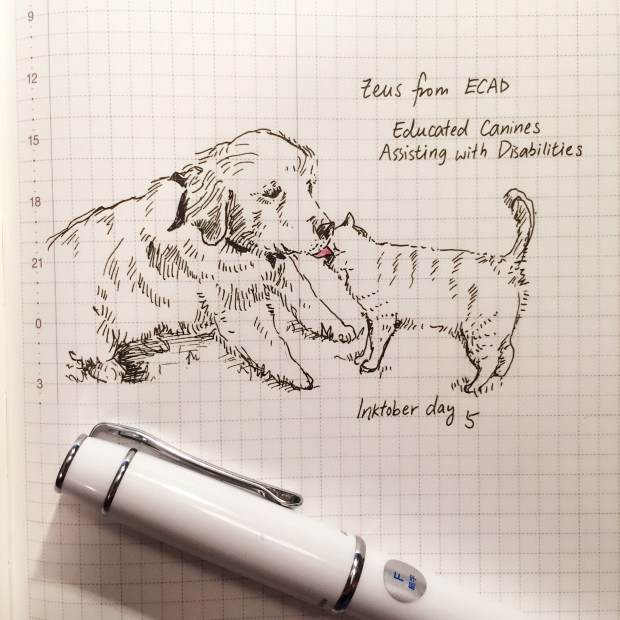 9
12
15
18
21
0
3
Zeus from ECAD
Educated Canines
Assisting with Disabilities
Inktober day 5
F